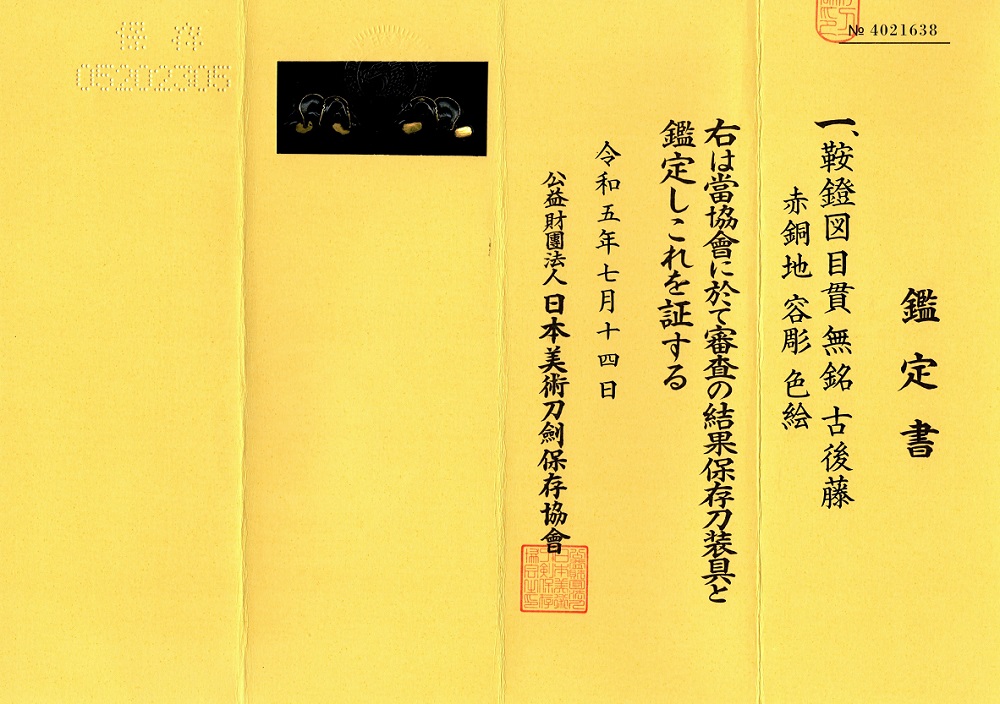 № 4021638
鑑定書
一、鞍鐙図目貫 無銘 古後藤
赤銅地 容彫 色絵
右は當協會に於て審査の結果保存刀装具と
鑑定しこれを証する
令和五年七月十四日
公益財團法人 日本美術刀劍保存協會
保存
05202305